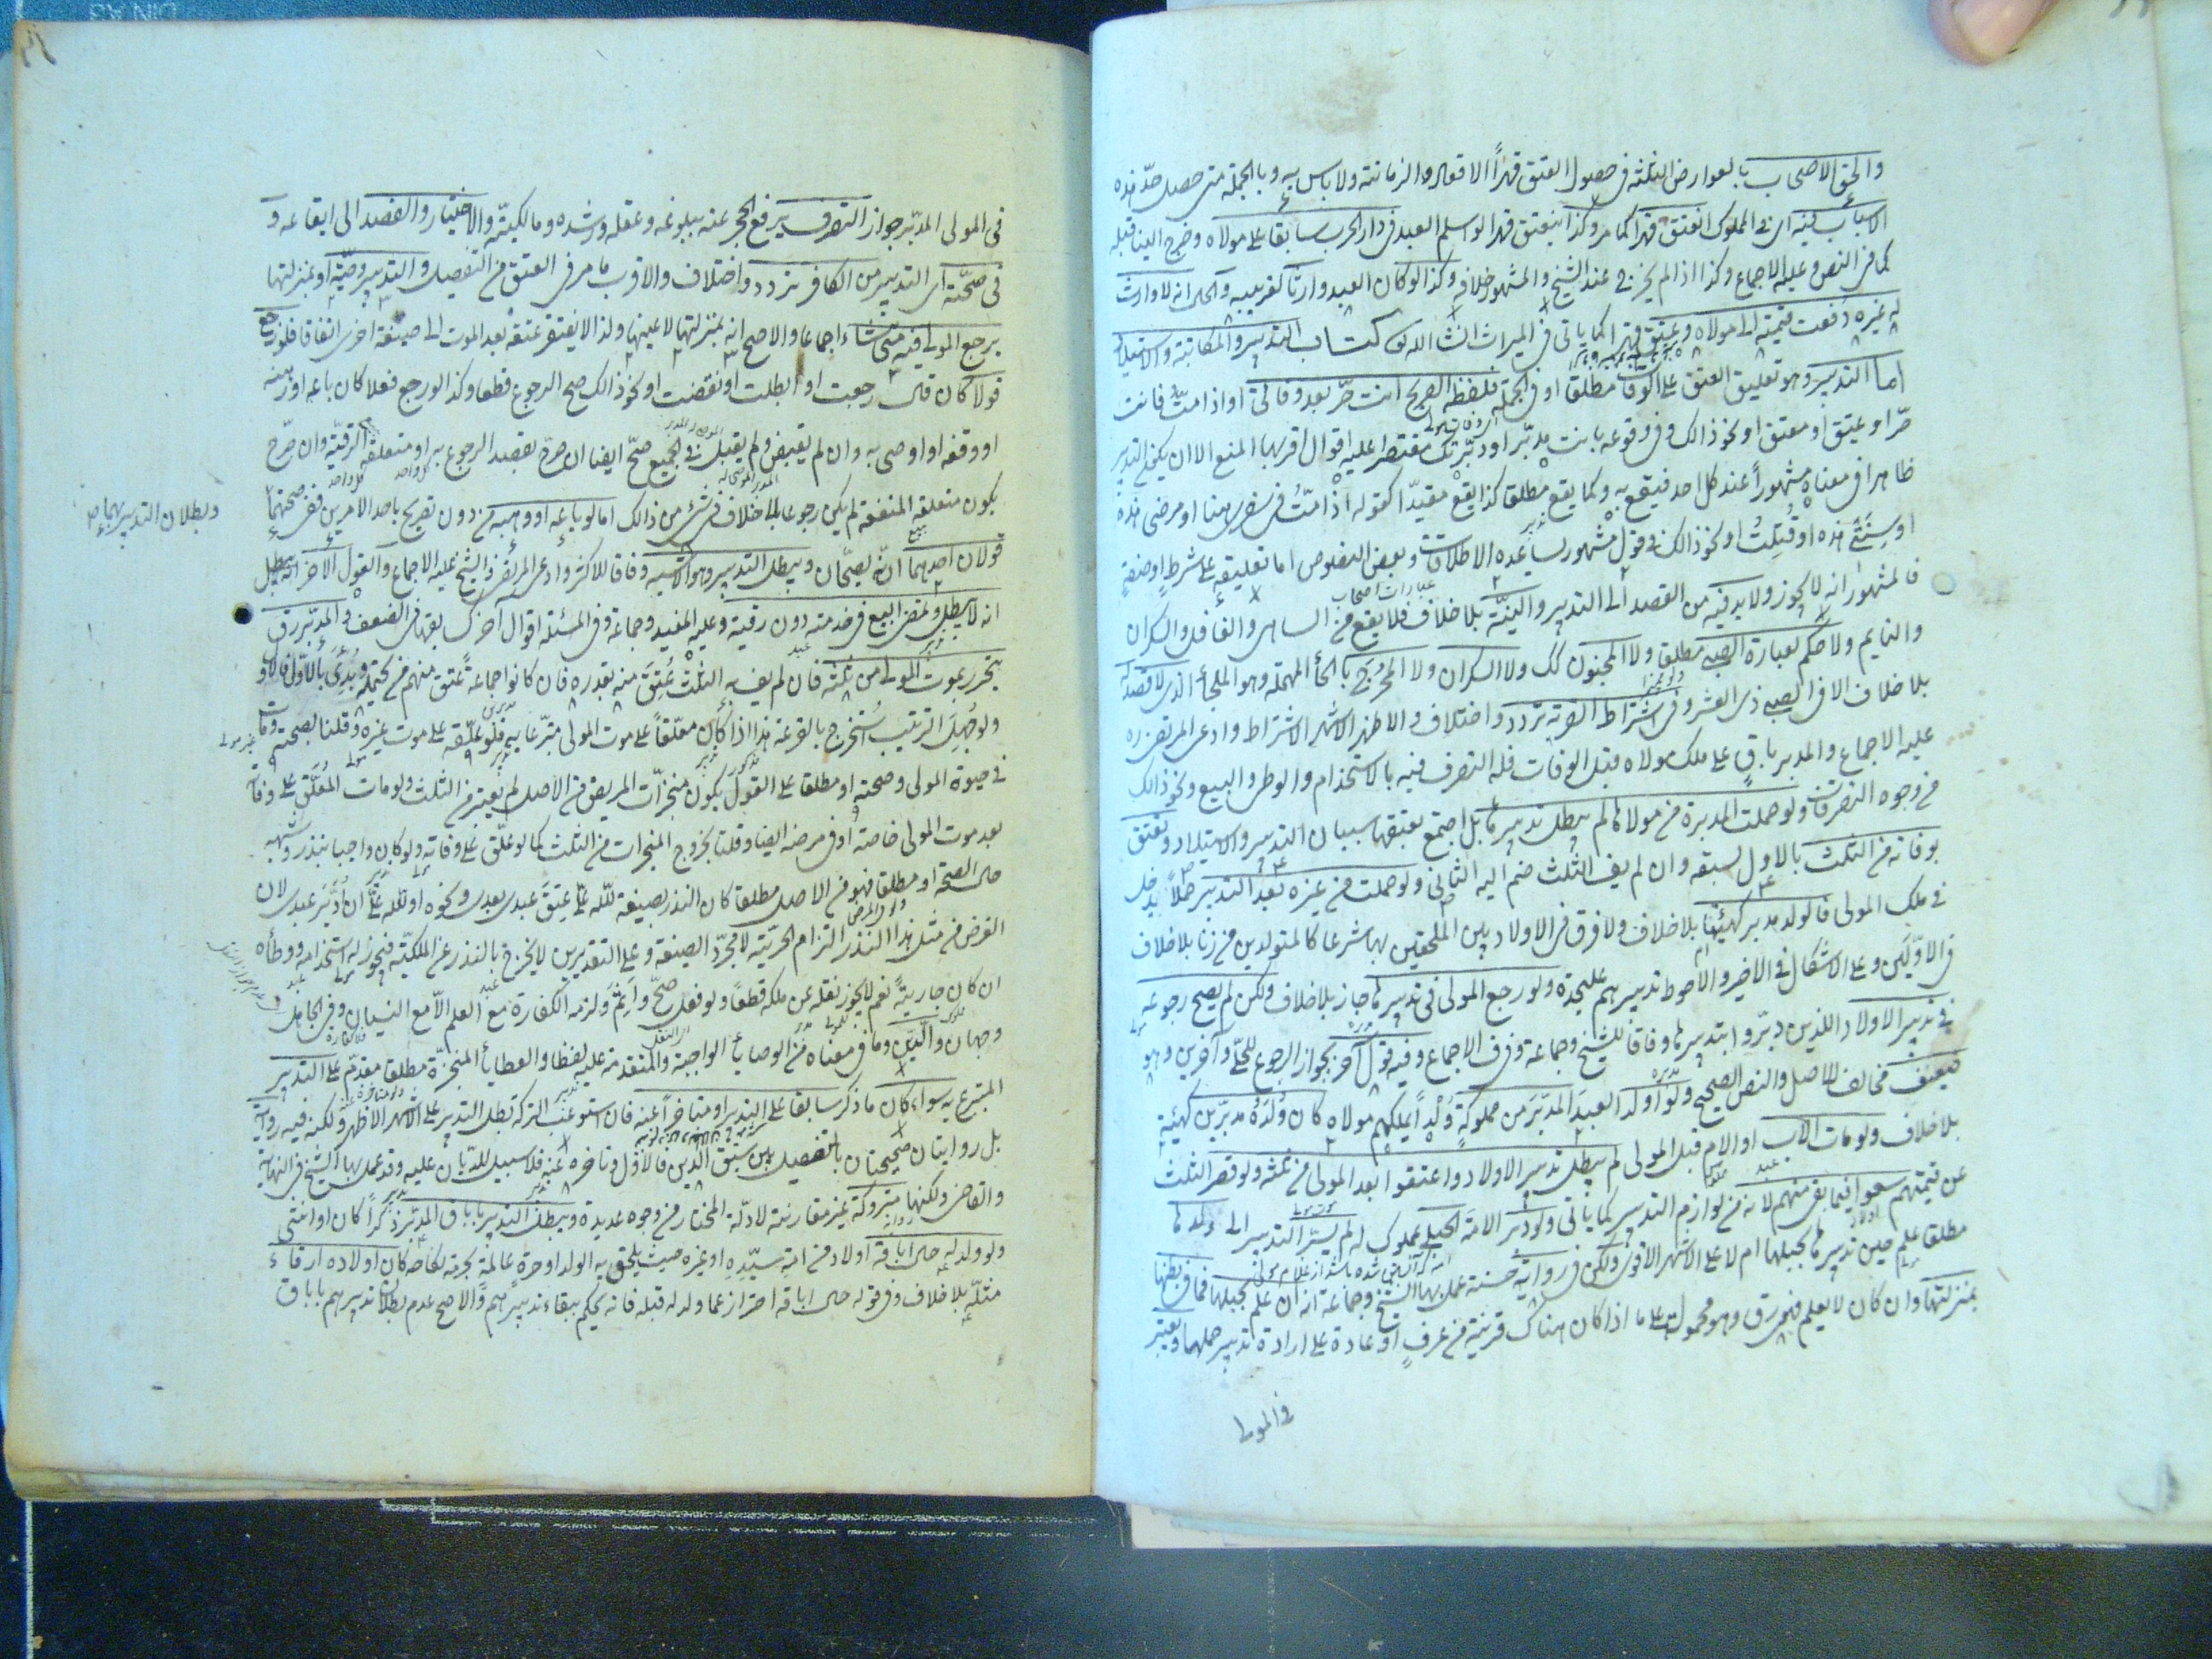 والحق الاصحاب بالعوارض الثلثة في حصول العتق قهراً الاقعاد والزمانة ولا باس به وبالجملة متى حصل احد هذه
الاسباب فيه اى في المملوك انعتق قهرا كما مر وكذا ينعتق قهرا لو اسلم العبد في دار الحرب سابقا على مولاه وخرج الينا قبله
كما في النص وعليه الاجماع وكذا اذا لم يخرج عند الشيخ والمشهور خلافه وكذا لو كان العبد وارثا لقريبه والحال انه لا وارث
له غيره دفعت قيمته الى مولاه وعتق قهرا كما ياتى في الميراث انشاء الله كتاب التدبير والمكاتبة والاستيلاد
اما التدبير وهو تعليق العتق على الوفات مطلقا او في الجملة فلفظه الصريح انت حر بعد وفاتى او اذا مت فانت
حر او عتيق او معتق او نحو ذالك وفي وقوعه بانت مدبر او دبرتك مقتصرا عليه اقوال اقربها المنع الا ان يكون التدبير
ظاهرا في معناه مشهوراً عند كل احد فيقع به وكما يقع مطلقا كذا يقع مقيدا كقوله اذا مت في سفرى هذا او مرضى هذا
او سنتى هذه او قتلت او نحو ذالك في قول مشهور يساعده الاطلاقات وبعض النصوص اما تعليقه على شرط او صفة
فالمشهور انه لا يجوز ولا بد فيه من القصد الى التدبير والنية بلا خلاف فلا يقع من الساهى والغافل والسكران
والنايم ولا حكم لعبارة الصبى مطلقا ولا المجنون كك ولا السكران ولا المحرج بالحاء المهملة وهو الملجأ الذى لا قصد له
بلا خلاف الا في الصبى ذى العشر وفي اشتراط القربة تردد واختلاف والاظهر الاشهر الاشتراط وادعى المرتضى ره
عليه الاجماع والمدبر باق على ملك مولاه قبل الوفات فله التصرف فيه بالاستخدام والوطى والبيع ونحو ذالك
من وجوه التصرفات ولو حملت المدبرة من مولاها لم يبطل تدبيرها بل اجتمع بعتقها سببان التدبير والاستيلاد وتعتق
بوفاته من الثلث بالاول لسبقه وان لم يف الثلث ضم اليه الثانى ولو حملت من غيره بعد التدبير حملاً يدخل
في ملك المولى فالولد مدبر كهيئتها بلا خلاف ولا فرق في الاولاد بين الملحقين بها شرعا كالمتولدين من زنا بلا خلاف
في الاولين وعلى الاشكال في الاخير والاحوط تدبيرهم عليحدة ولو رجع المولى في تدبيرها جاز بلا خلاف ولكن لم يصح رجوعه
في تدبير الاولاد الذين دبروا بتدبيرها وفاقا للشيخ وجماعة وفي ف الاجماع وفيه قول آخر بجواز الرجوع للحلى وآخرين وهو
ضعيف مخالف للاصل والنص الصحيح ولو اولد العبد المدبر من مملوكة ولداً يملكهم مولاه كان ولده مدبرين كهيئته
بلا خلاف ولو مات الاب او الام قبل المولى لم يبطل تدبير الاولاد واعتقوا بعد المولى من ثلثه ولو قصر الثلث
عن قيمتهم سعوا فيما بقى منهم لانه من لوازم التدبير كما ياتى ولو دبر الامة الحبلى بمملوك له لم يسر التدبير الى ولدها
مطلقا علم حين تدبيرها بحبلها ام لا على الاشهر الاقوى ولكن في رواية حسنة عمل بها الشيخ وجماعة انه ان علم بحبلها فما في بطنها
بمنزلتها وان كان لا يعلم فهو رق وهو محمول على ما اذا كان هناك قرينة من عرف او عادة على ارادة تدبير حملها ويعتبر
في المولى
في المولى المدبر جواز التصرف برفع الحجر عنه ببلوغه وعقله ورشده ومالكيته والاختيار والقصد الى ايقاعه و
في صحته اى التدبير من الكافر تردد واختلاف والاقرب ما مر في العتق من التفصيل والتدبير وصية او بمنزلتها
يرجع المولى فيه متى شاء اجماعا والاصح انه بمنزلتها لا عينها ولذا لا يفتقر عتقه بعد الموت الى صيغة اخرى اتفاقا فلو رجع
قولا كان قال رجعت او ابطلت او نقضت او نحو ذالك صح الرجوع قطعا وكذا لو رجع فعلا كان باعه او رهنه
او وقفه او اوصى به وان لم يقبض ولم يقبل في الجميع صح ايضا ان صرح بقصد الرجوع به او متعلقه الرقية وان صرح
بكون متعلقه المنفعة لم يكن رجوعا بلا خلاف في شئ من ذالك اما لو باعه او وهبه من دون تصريح باحد الامرين ففي صحتهما
وبطلان التدبير بهما
قولان احدهما انه يصحان ويبطل التدبير وهو الاشبه وفاقا للاكثر وادعى المرتضى والشيخ عليه الاجماع والقول الآخر
انه لا يبطل ويمضى البيع في خدمته دون رقيته وعليه المفيد وجماعة وفي المسئلة اقوال آخر كسابقها في الضعف والمدبر رق
يتحرر بموت المولى من ثلثه فان لم يف به الثلث عتق منه بقدره فان كانوا جماعة عتق منهم من يحتمله وبدئ بالاول فالاول
ولو جهل الترتيب استخرج بالقرعة هذا اذا كان معلقاً على موت المولى متبرعا به فلو علقه على موت غيره وقلنا بصحته ومات
في حيوة المولى وصحته او مطلقا على القول بكون منجزات المريض من الاصل لم يعتبر من الثلث ولو مات المعلق على وفاته
بعد موت المولى خاصة او في مرضه ايضا وقلنا بخروج المنجزات من الثلث كما لو علق على وفاته ولو كان واجبا بنذر وشبهه
حال الصحة او مطلقا فهو من الاصل مطلقا كان النذر بصيغة لله على عتق عبدى بعدى ونحوه او لله على ان ادبر عبدى لان
الغرض من مثل هذا النذر التزام الحرية لا مجرد الصيغة وعلى التقديرين لا يخرج بالنذر عن الملكية فيجوز له استخدامه ووطأه
ان كان جارية نعم لا يجوز نقله عن ملكه قطعا ولو فعل صح واثم ولزمه الكفارة مع العلم لا مع النسيان وفي الجاهل
وجهان والدين وما في معناه من الوصايا الواجبة والمتقدمة عليه لفظا والعطايا المنجزة مطلقا مقدم على التدبير
المتبرع به سواء كان ما ذكر سابقا على التدبير او متاخراً عنه فان استوعب التركة بطل التدبير على الاشهر الاظهر ولكن فيه رواية
بل روايتان صحيحتان بالتفصيل بين سبق الدين فالاول وتاخره عنه فلا سبيل للديان عليه وقد عمل بها الشيخ في النهاية
والقاضى ولكنها متروكة غير مقارنة لادلة المختار من وجوه عديدة ويبطل التدبير باباق المدبر ذكراً كان او انثى
ولو ولد له حال اباقه اولاد من امة سيده او غيره حيث يلحق به الولد او حرة عالمة بحرمة نكاحه كان اولاده ارقاء
مثله بلا خلاف وفي قوله حال اباقه احتراز عما ولد له قبله فانه يحكم ببقاء تدبيرهم والاصح عدم بطلان تدبيرهم باباق